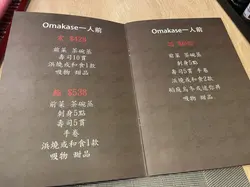 Omakase一人前
$428
前菜 茶碗蒸
壽司10貫
浜燒或和食1款
吸物 甜品
$538
前菜 茶碗蒸
刺身5點
壽司5貫
手卷
浜燒或和食1款
吸物 甜品
Omakase一人前
前菜 茶碗蒸
刺身5點
壽司5貫 手卷
浜燒或和食2款
吸物 甜品